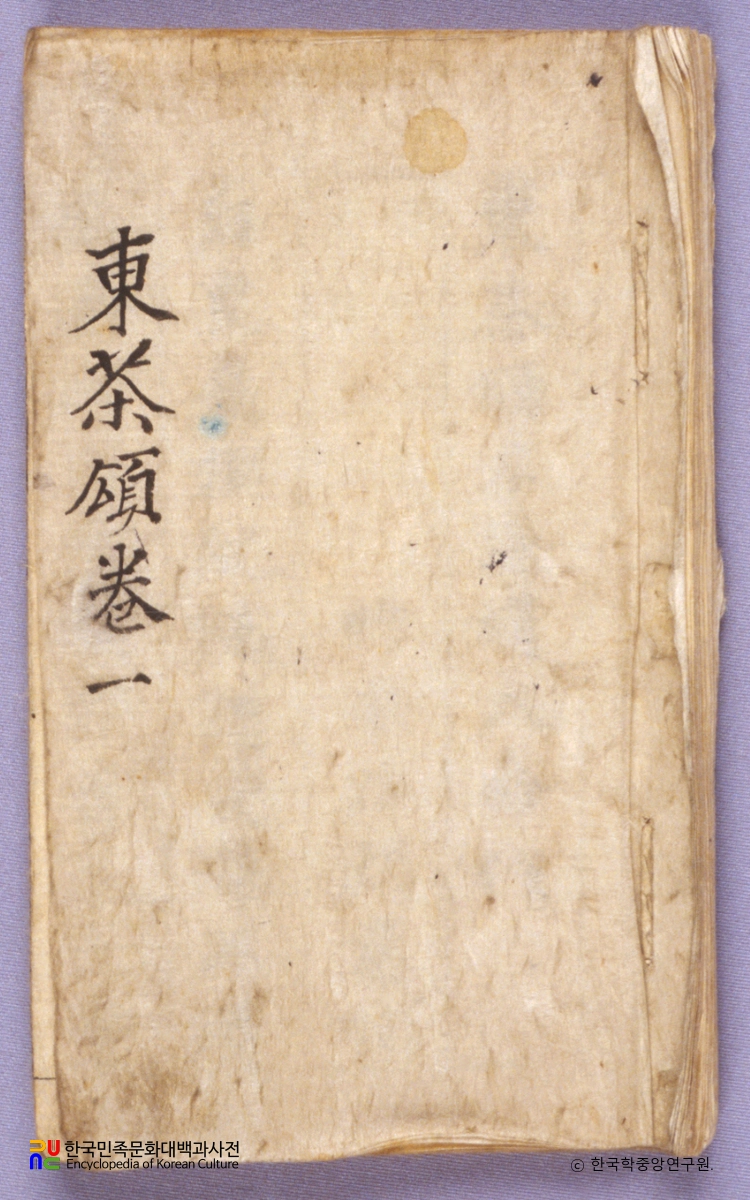 東茶頌卷一
한국민족문화대백과사전
Encyclopedia of Korean Culture
© 한국학중앙연구원.